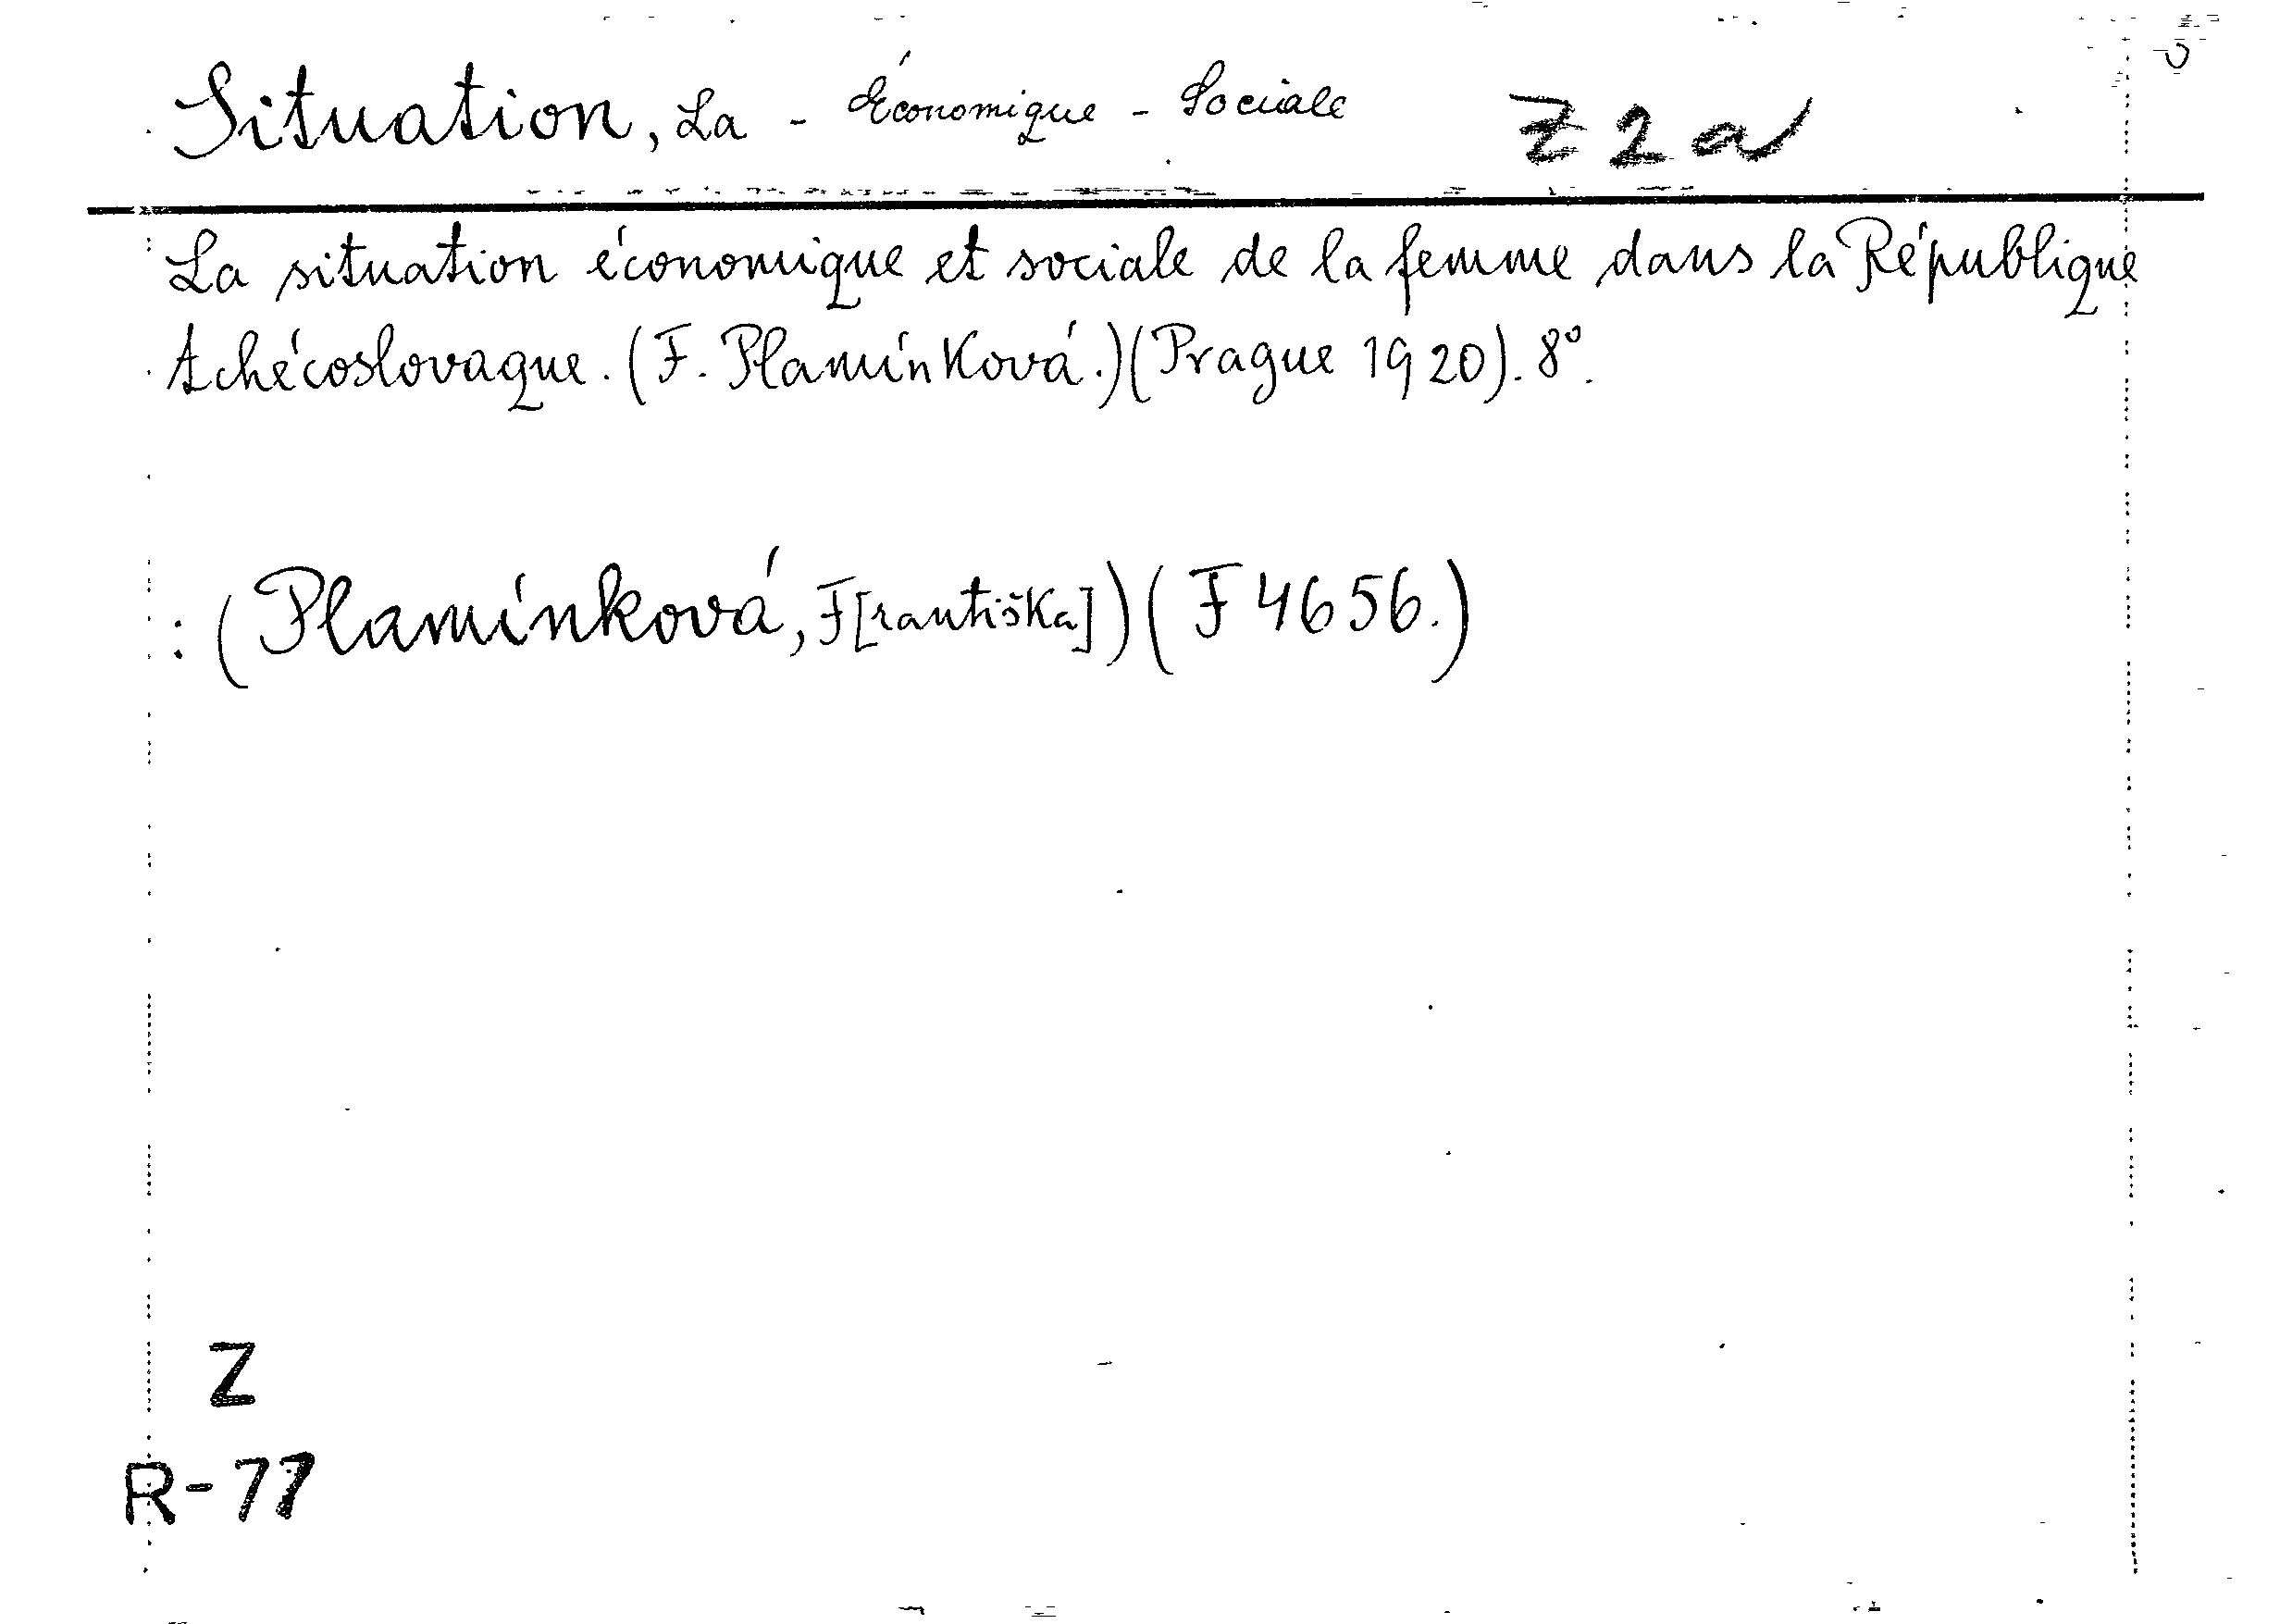 Situation, La - Économique - Sociale Z 2 a
La situation économique et sociale de la femme dans la République
tchécoslovaque. (F. Plamínková.) (Prague 1920). 8°.
: (Plamínková, F[rantiška]) (F 4656.)
Z
R-77